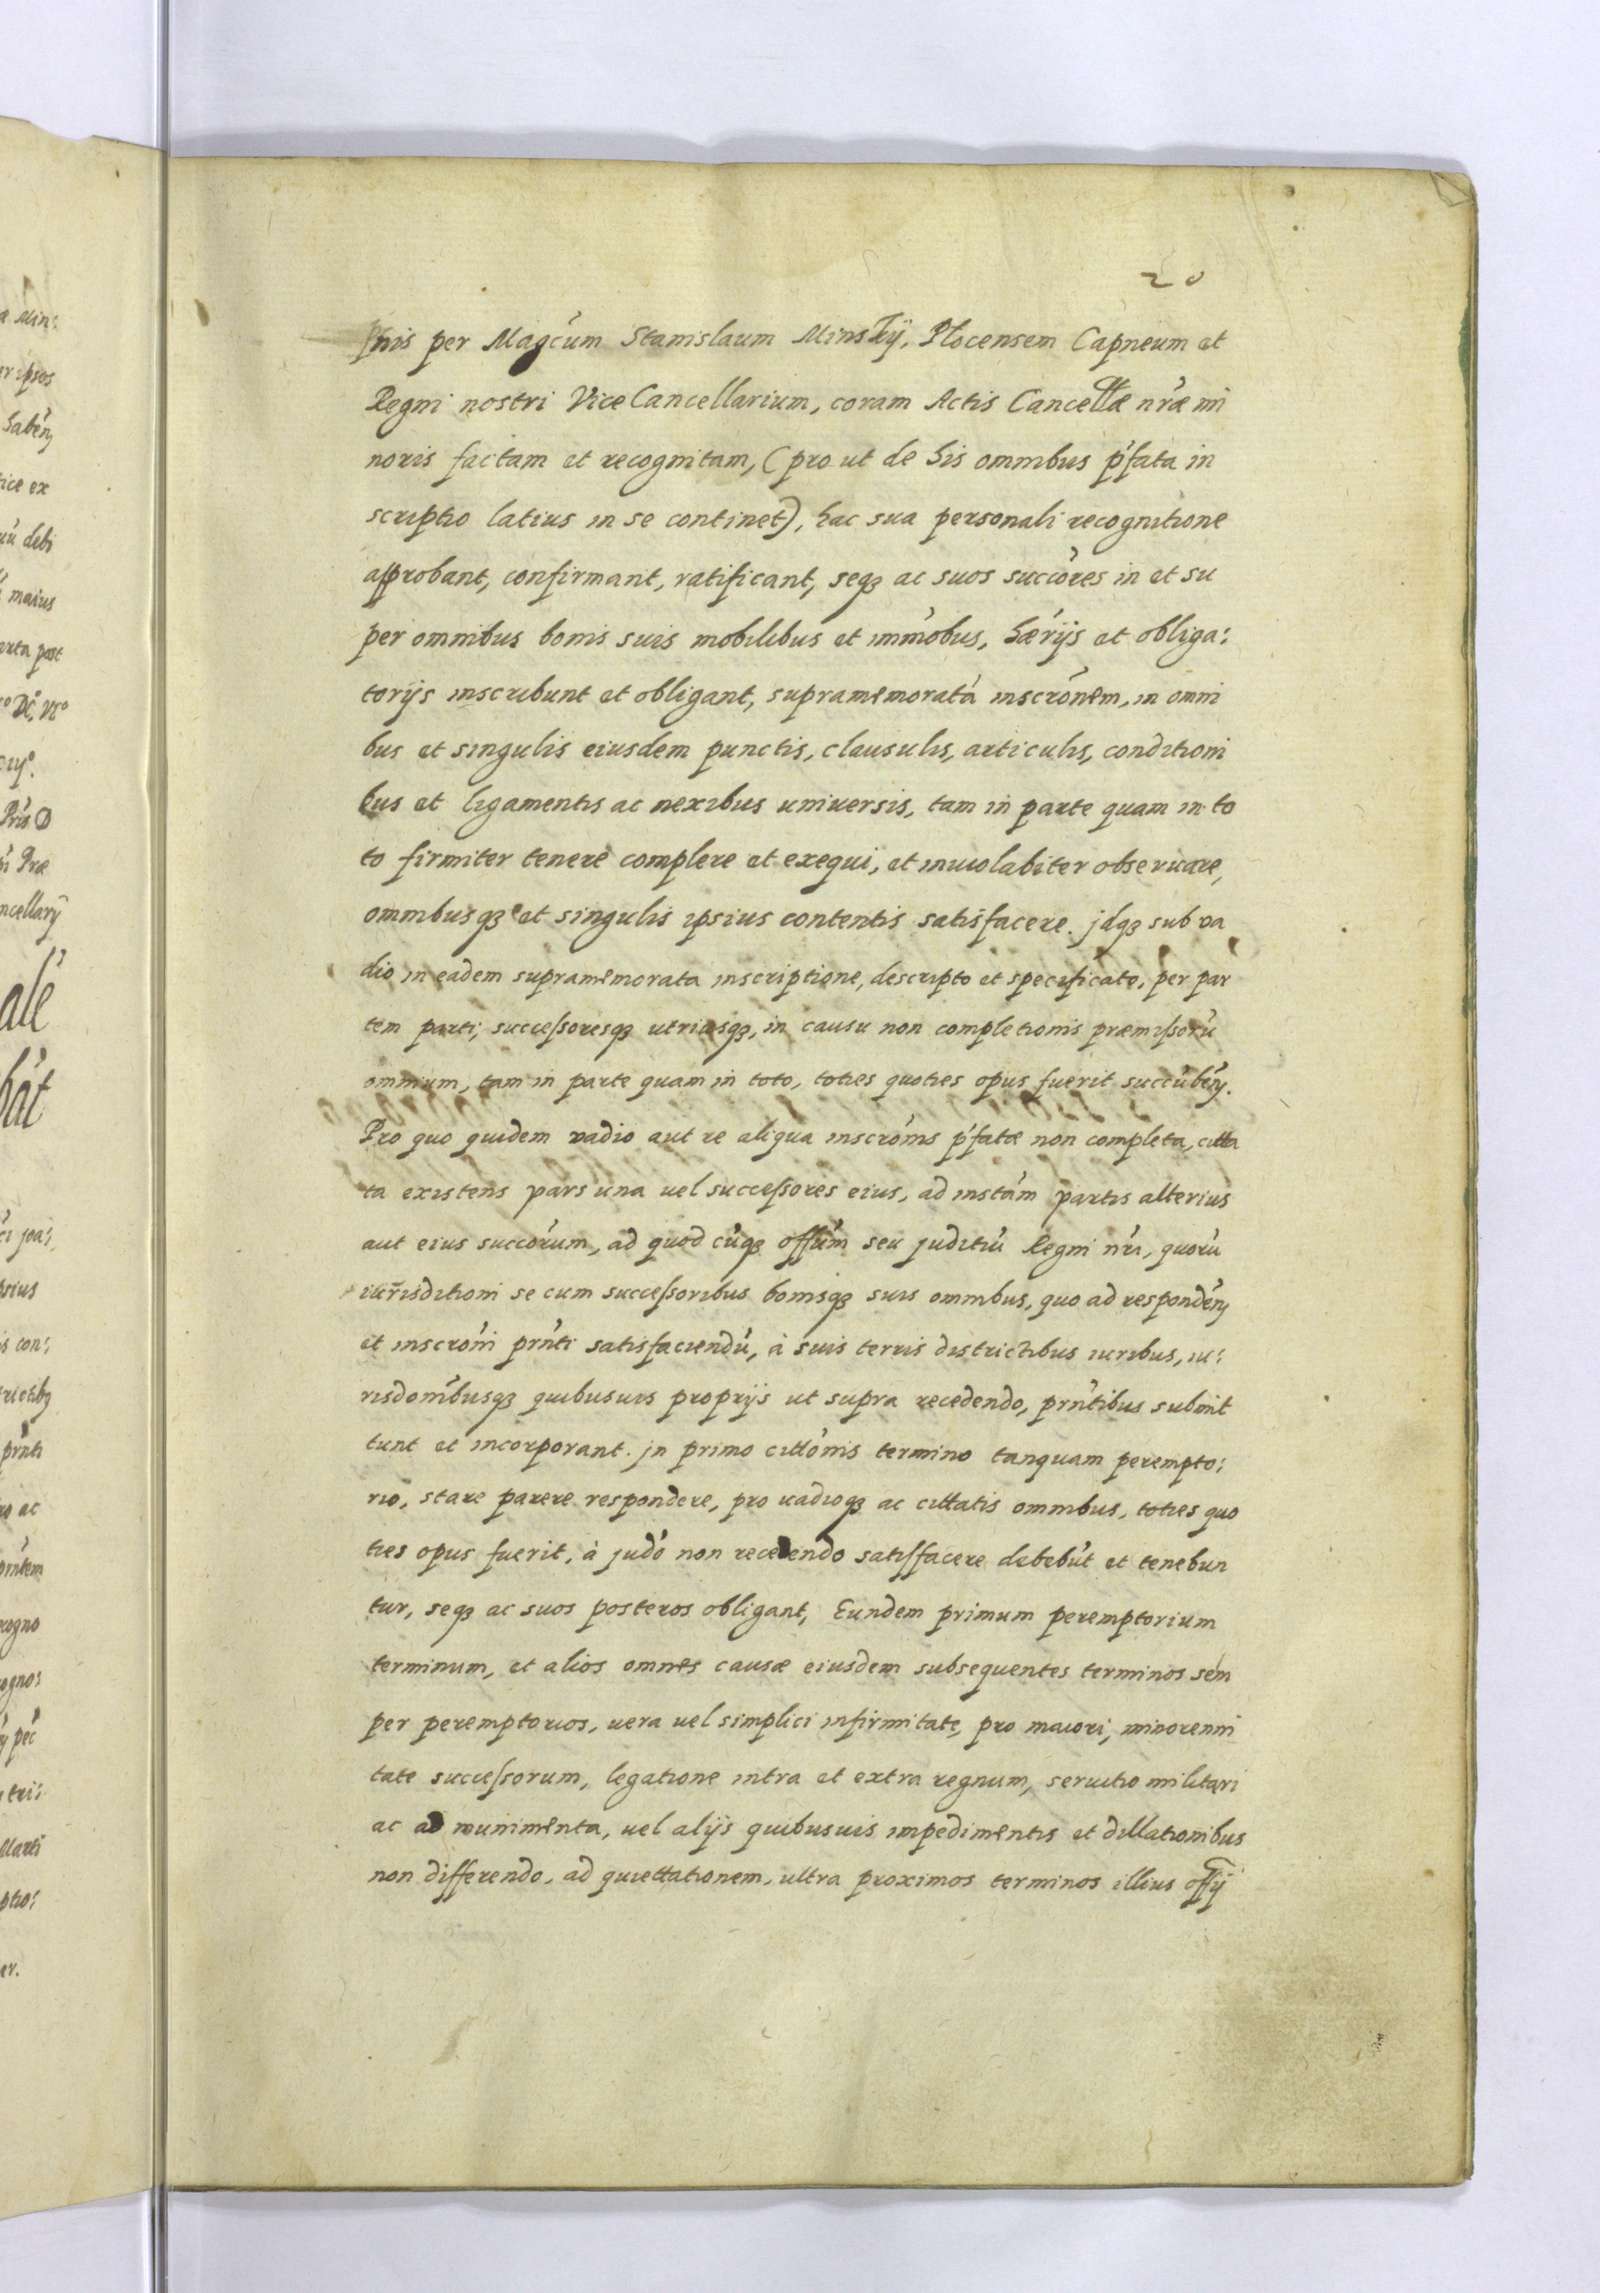 20
pnis per Magcum Stanislaum Minsky, Plocensem Capneum et
Regni nostri ViceCancellarium, coram Actis Cancellæ nræ mi
noris factam et recognitam, (pro ut de his omnibus pfata in
scriptio latius in se continet), hac sua personali recognitione
approbant, confirmant, ratificant, seqʒ ac suos succóres in et su
per omnibus bonis suis mobilibus et immóbus, hærijs et obliga:
torijs inscribunt et obligant, supramemoratá inscrónem, in omni
bus et singulis eiusdem punctis, clausulis, articulis, conditioni
bus et ligamentis ac nexibus uniuersis, tam in parte quam in to
to firmiter tenere complere et exequi, et inuiolabiter obseruare,
omnibusqʒ et singulis ipsius contentis satisfacere. jdqʒ sub va
dio in eadem supramemorata inscriptione, descripto et specificato, per par
tem parti, successoresqʒ utriusqʒ, in causu non completionis præmissorú
omnium, tam in parte quam in toto, toties quoties opus fuerit succúbeń.
Pro quo quidem vadio aut re aliqua inscrónis pfatæ non completa, citta
ta existens pars una uel successores eius, ad instám partis alterius
aut eius succórum, ad quod cúqʒ offúm seu juditiú Regni nri, quorú
iurisditioni se cum successoribus bonisqʒ suis omnibus, quo ad respondeń
et inscróni prnti satisfaciendú, à suis terris districtibus iuribus, iu:
risdonibusqʒ quibusuis proprijs ut supra recedendo, prntibus submit
tunt et incorporant. jn primo cittónis termino tanquam perempto:
rio, stare parere respondere, pro vadioqʒ ac cittatis omnibus, toties quo
ties opus fuerit, à judó non recedendo satisfacere debebút et tenebun
tur, seqʒ ac suos posteros obligant, Eundem primum peremptorium
terminum, et alios omnes causæ eiusdem subsequentes terminos sem
per peremptorios, uera uel simplici infirmitate, pro maiori, minorenni
tate successorum, legatione intra et extra regnum, seruitio militari
ac ad munimenta, uel alijs quibusuis impedimentis et dillationibus
non differendo, ad quiettationem, ultra proximos terminos illius offij